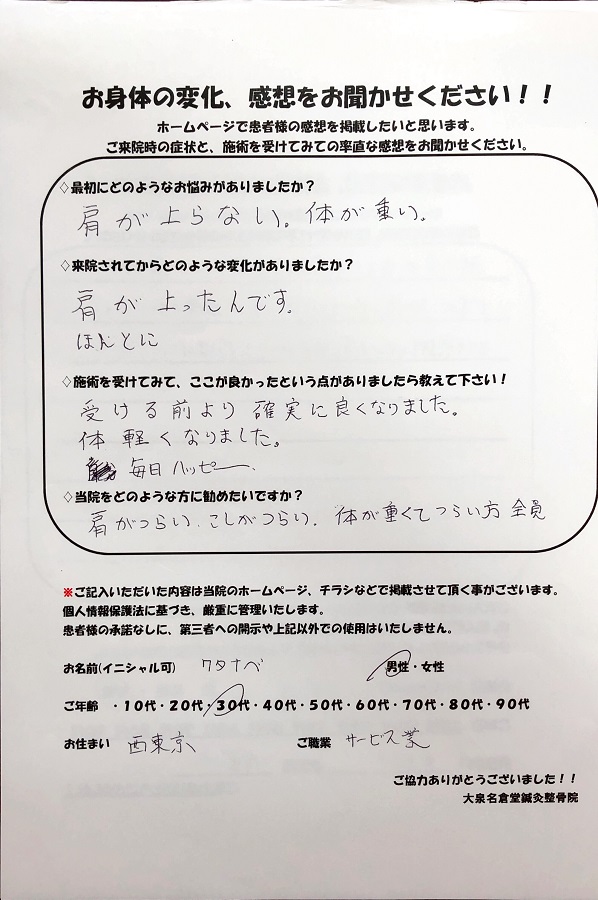 お身体の変化、感想をお聞かせください！！
ホームページで患者様の感想を掲載したいと思います。
ご来院時の症状と、施術を受けてみての率直な感想をお聞かせください。
◇最初にどのようなお悩みがありましたか？
肩が上らない。体が重い。
◇来院されてからどのような変化がありましたか？
肩が上ったんです。
ほんとに
◇施術を受けてみて、ここが良かったという点がありましたら教えて下さい！
受ける前より確実に良くなりました。
体軽くなりました。
毎日ハッピー、
◇当院をどのような方に勧めたいですか？
肩がつらい、こしがつらい、体が重くてつらい方 全員
※ご記入いただいた内容は当院のホームページ、チラシなどで掲載させて頂く事がございます。
個人情報保護法に基づき、厳重に管理いたします。
患者様の承諾なしに、第三者への開示や上記以外での使用はいたしません。
お名前(イニシャル可) ワタナベ 男性・女性
ご年齢 ・10代・20代・30代・40代・50代・60代・70代・80代・90代
お住まい 西東京 ご職業 サービス業
ご協力ありがとうございました！！
大泉名倉堂鍼灸整骨院